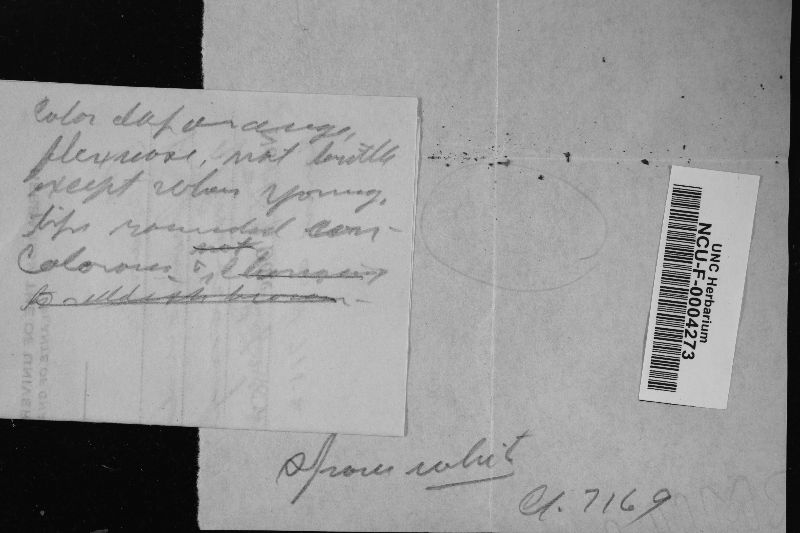 Color deep orange,
flexuose, not brittle
except when young,
tips rounded con-
colorous, not
to reddish brown-
Spores white
Cf. 7169
UNC Herbarium
NCU-F-0004273